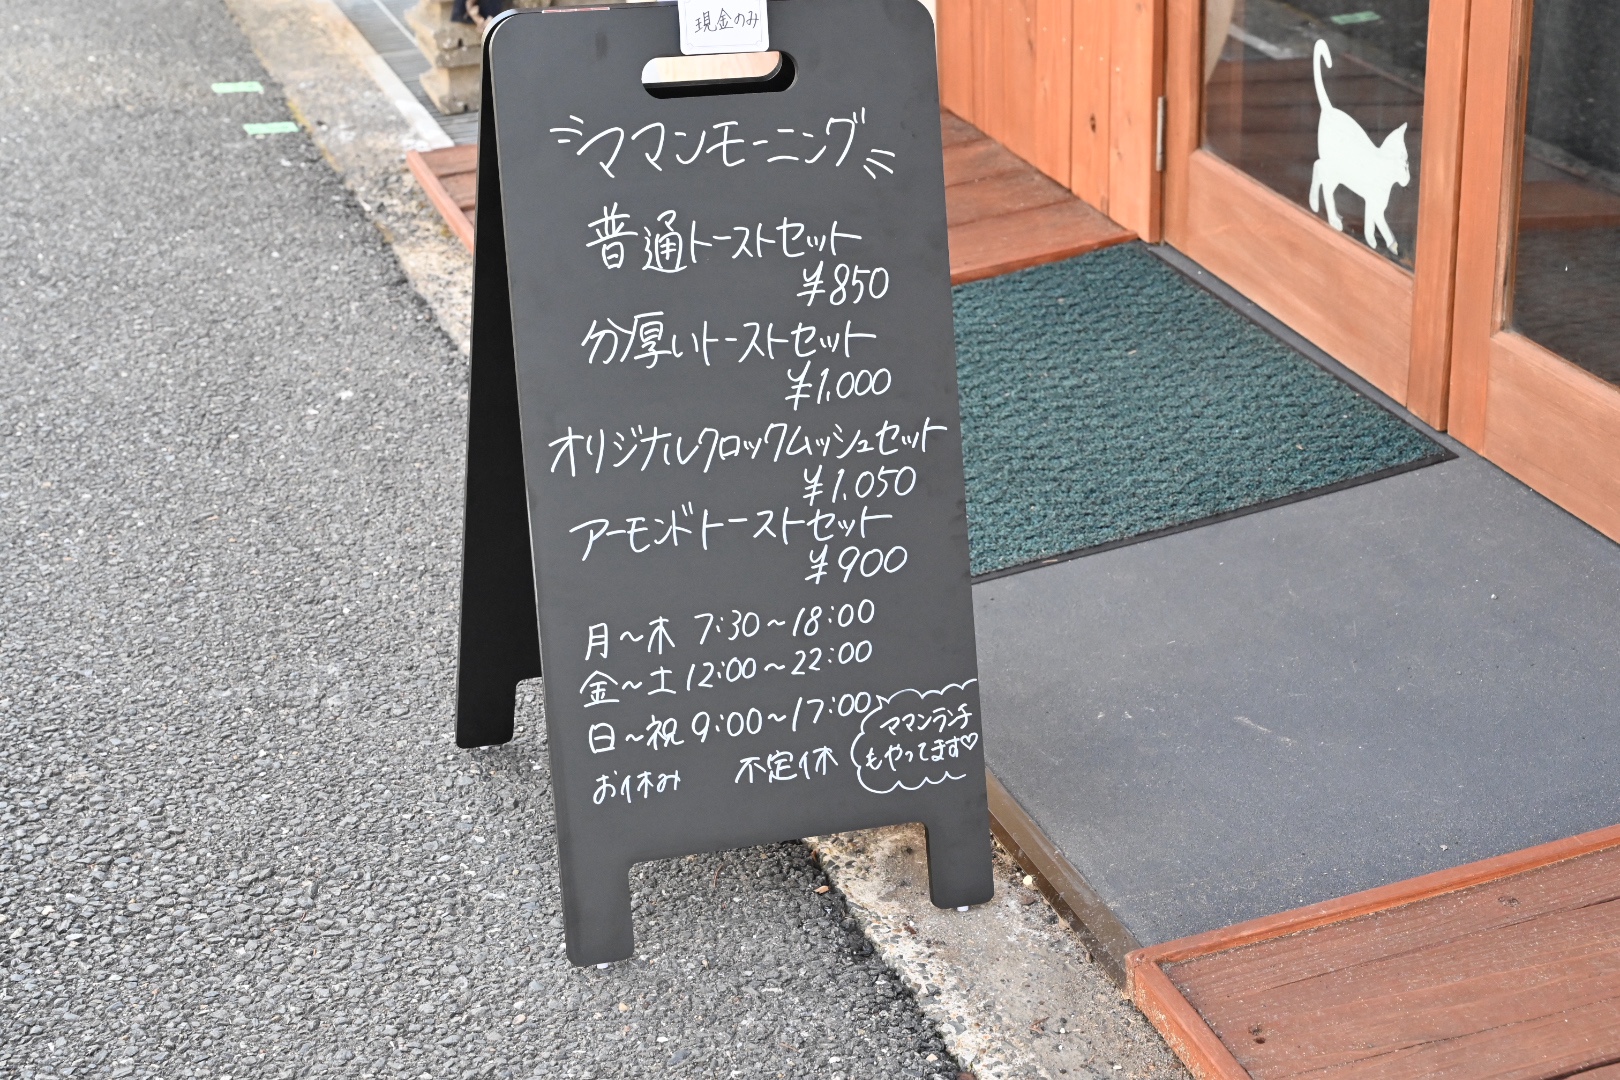 現金のみ
ママンモーニング
普通トーストセット
¥850
分厚いトーストセット
¥1,000
オリジナルクロックムッシュセット
¥1,050
アーモンドトーストセット
¥900
月～木 7:30～18:00
金～土 12:00～22:00
日～祝 9:00～17:00
お休み 不定休
ママンランチ
もやってます♡